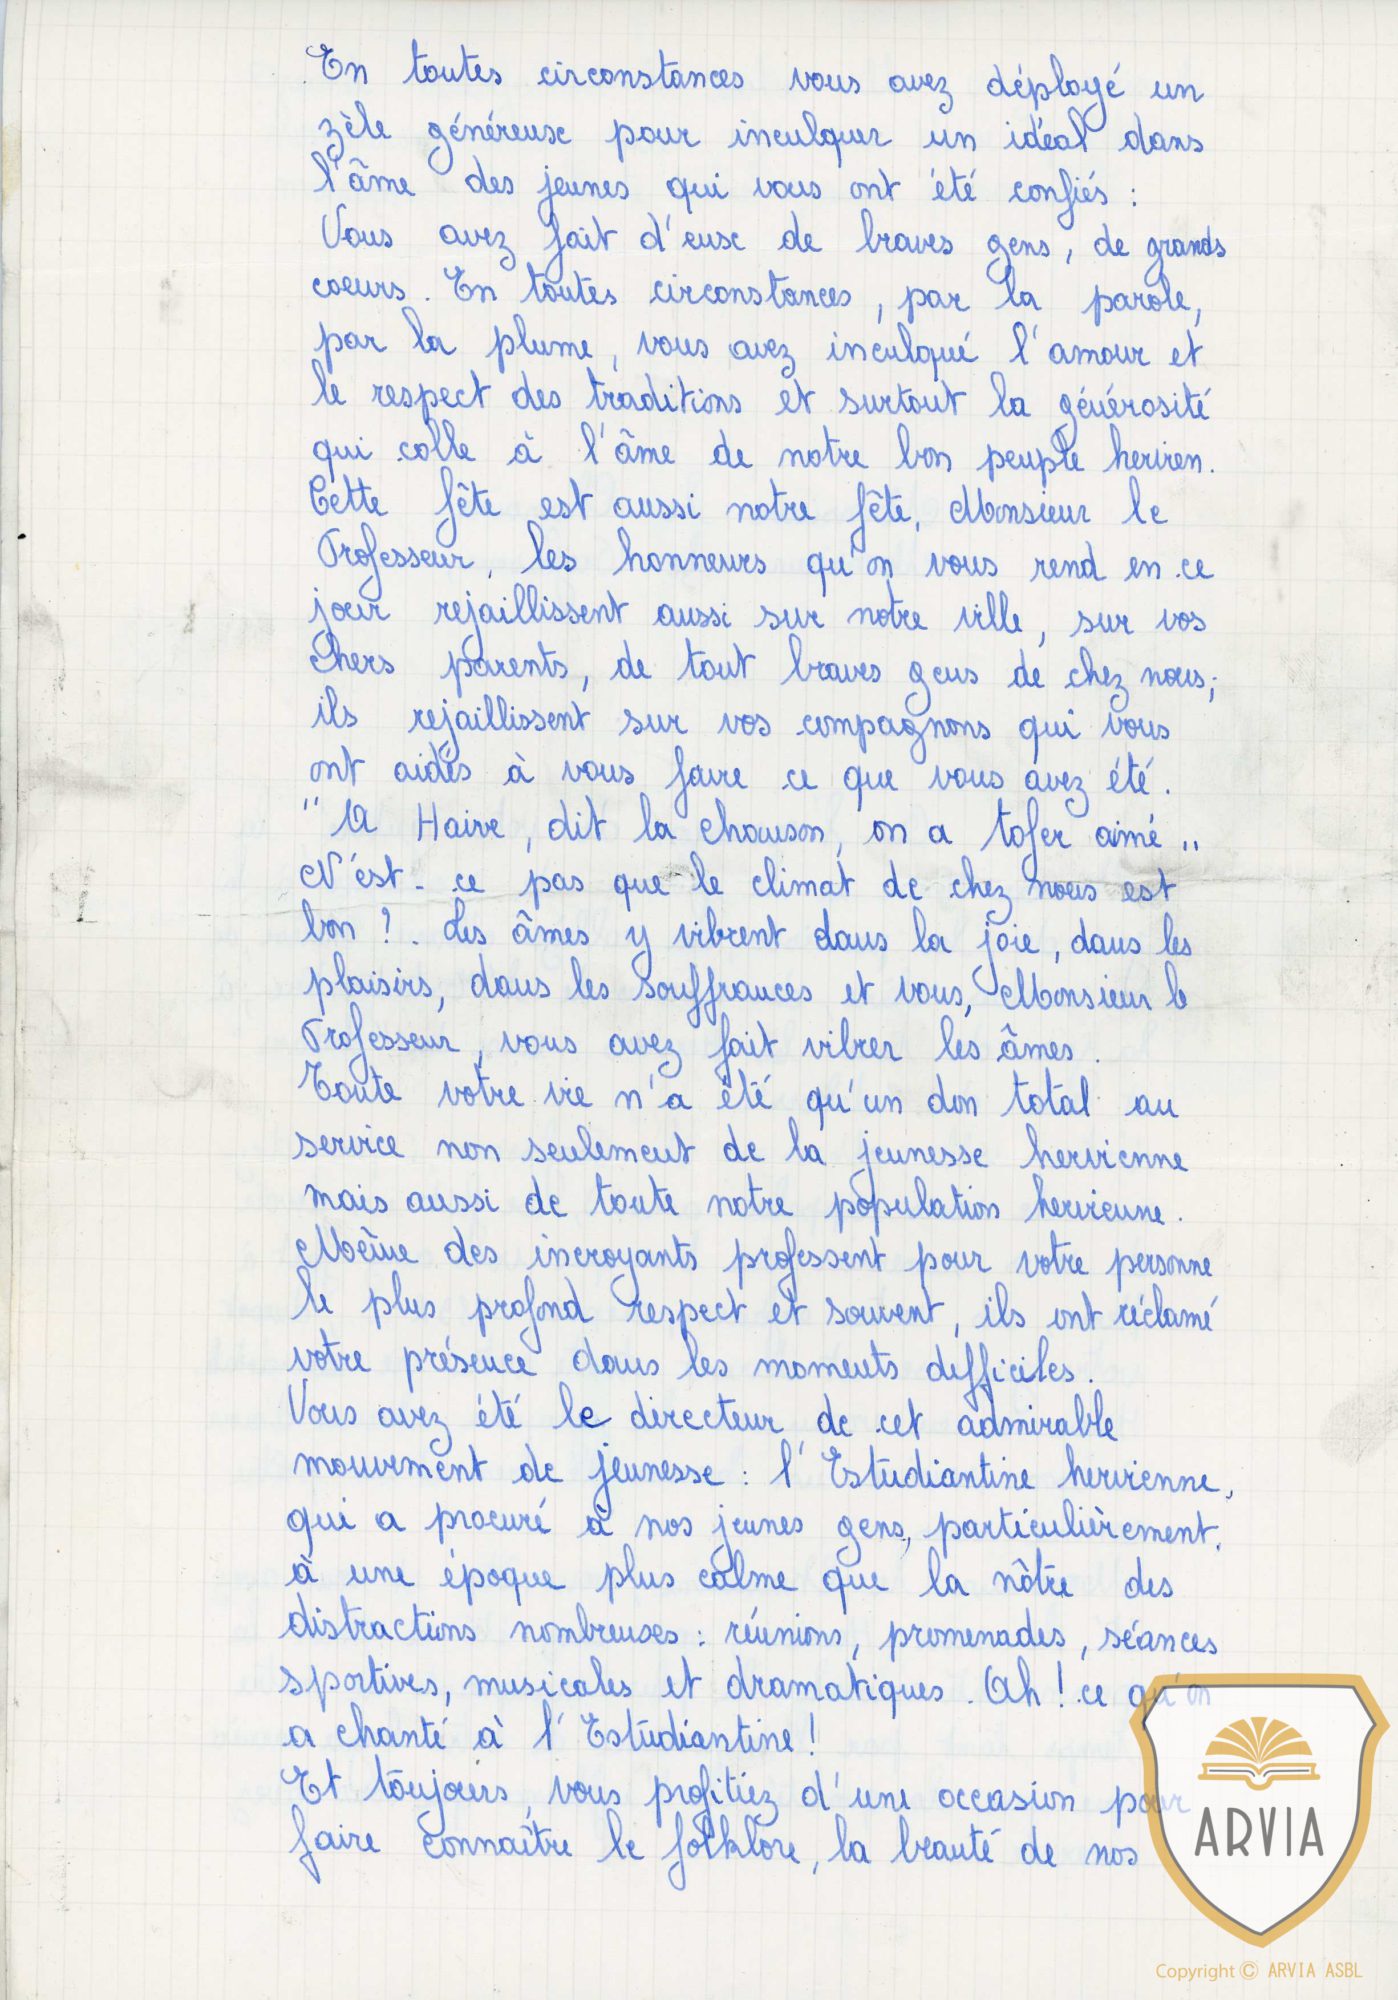 En toutes circonstances vous avez déployé un
zèle généreux pour inculquer un idéal dans
l'âme des jeunes qui vous ont été confiés :
Vous avez fait d'eux de braves gens, de grands
coeurs. En toutes circonstances, par la parole,
par la plume, vous avez inculqué l'amour et
le respect des traditions et surtout la générosité
qui colle à l'âme de notre bon peuple hervien.
Cette fête est aussi notre fête, Monsieur le
Professeur, les honneurs qu'on vous rend en ce
jour rejaillissent aussi sur notre ville, sur vos
chers parents, de tout braves gens de chez nous;
ils rejaillissent sur vos compagnons qui vous
ont aidés à vous faire ce que vous avez été.
"A Haive, dit la chanson, on a tofer aimé"
N'est-ce pas que le climat de chez nous est
bon ?. Les âmes y vibrent dans la joie, dans les
plaisirs, dans les souffrances et vous, Monsieur le
Professeur, vous avez fait vibrer les âmes.
Toute votre vie n'a été qu'un don total au
service non seulement de la jeunesse hervienne
mais aussi de toute notre population hervienne.
Même des incroyants professent pour votre personne
le plus profond respect et souvent, ils ont réclamé
votre présence dans les moments difficiles.
Vous avez été le directeur de cet admirable
mouvement de jeunesse : l'Estudiantine hervienne,
qui a procuré à nos jeunes gens, particulièrement,
à une époque plus calme que la nôtre des
distractions nombreuses : réunions, promenades, séances
sportives, musicales et dramatiques. Ah ! ce qu'on
a chanté à l'Estudiantine !
Et toujours, vous profitiez d'une occasion pour
faire connaître le folklore, la beauté de nos
ARVIA
Copyright © ARVIA ASBL